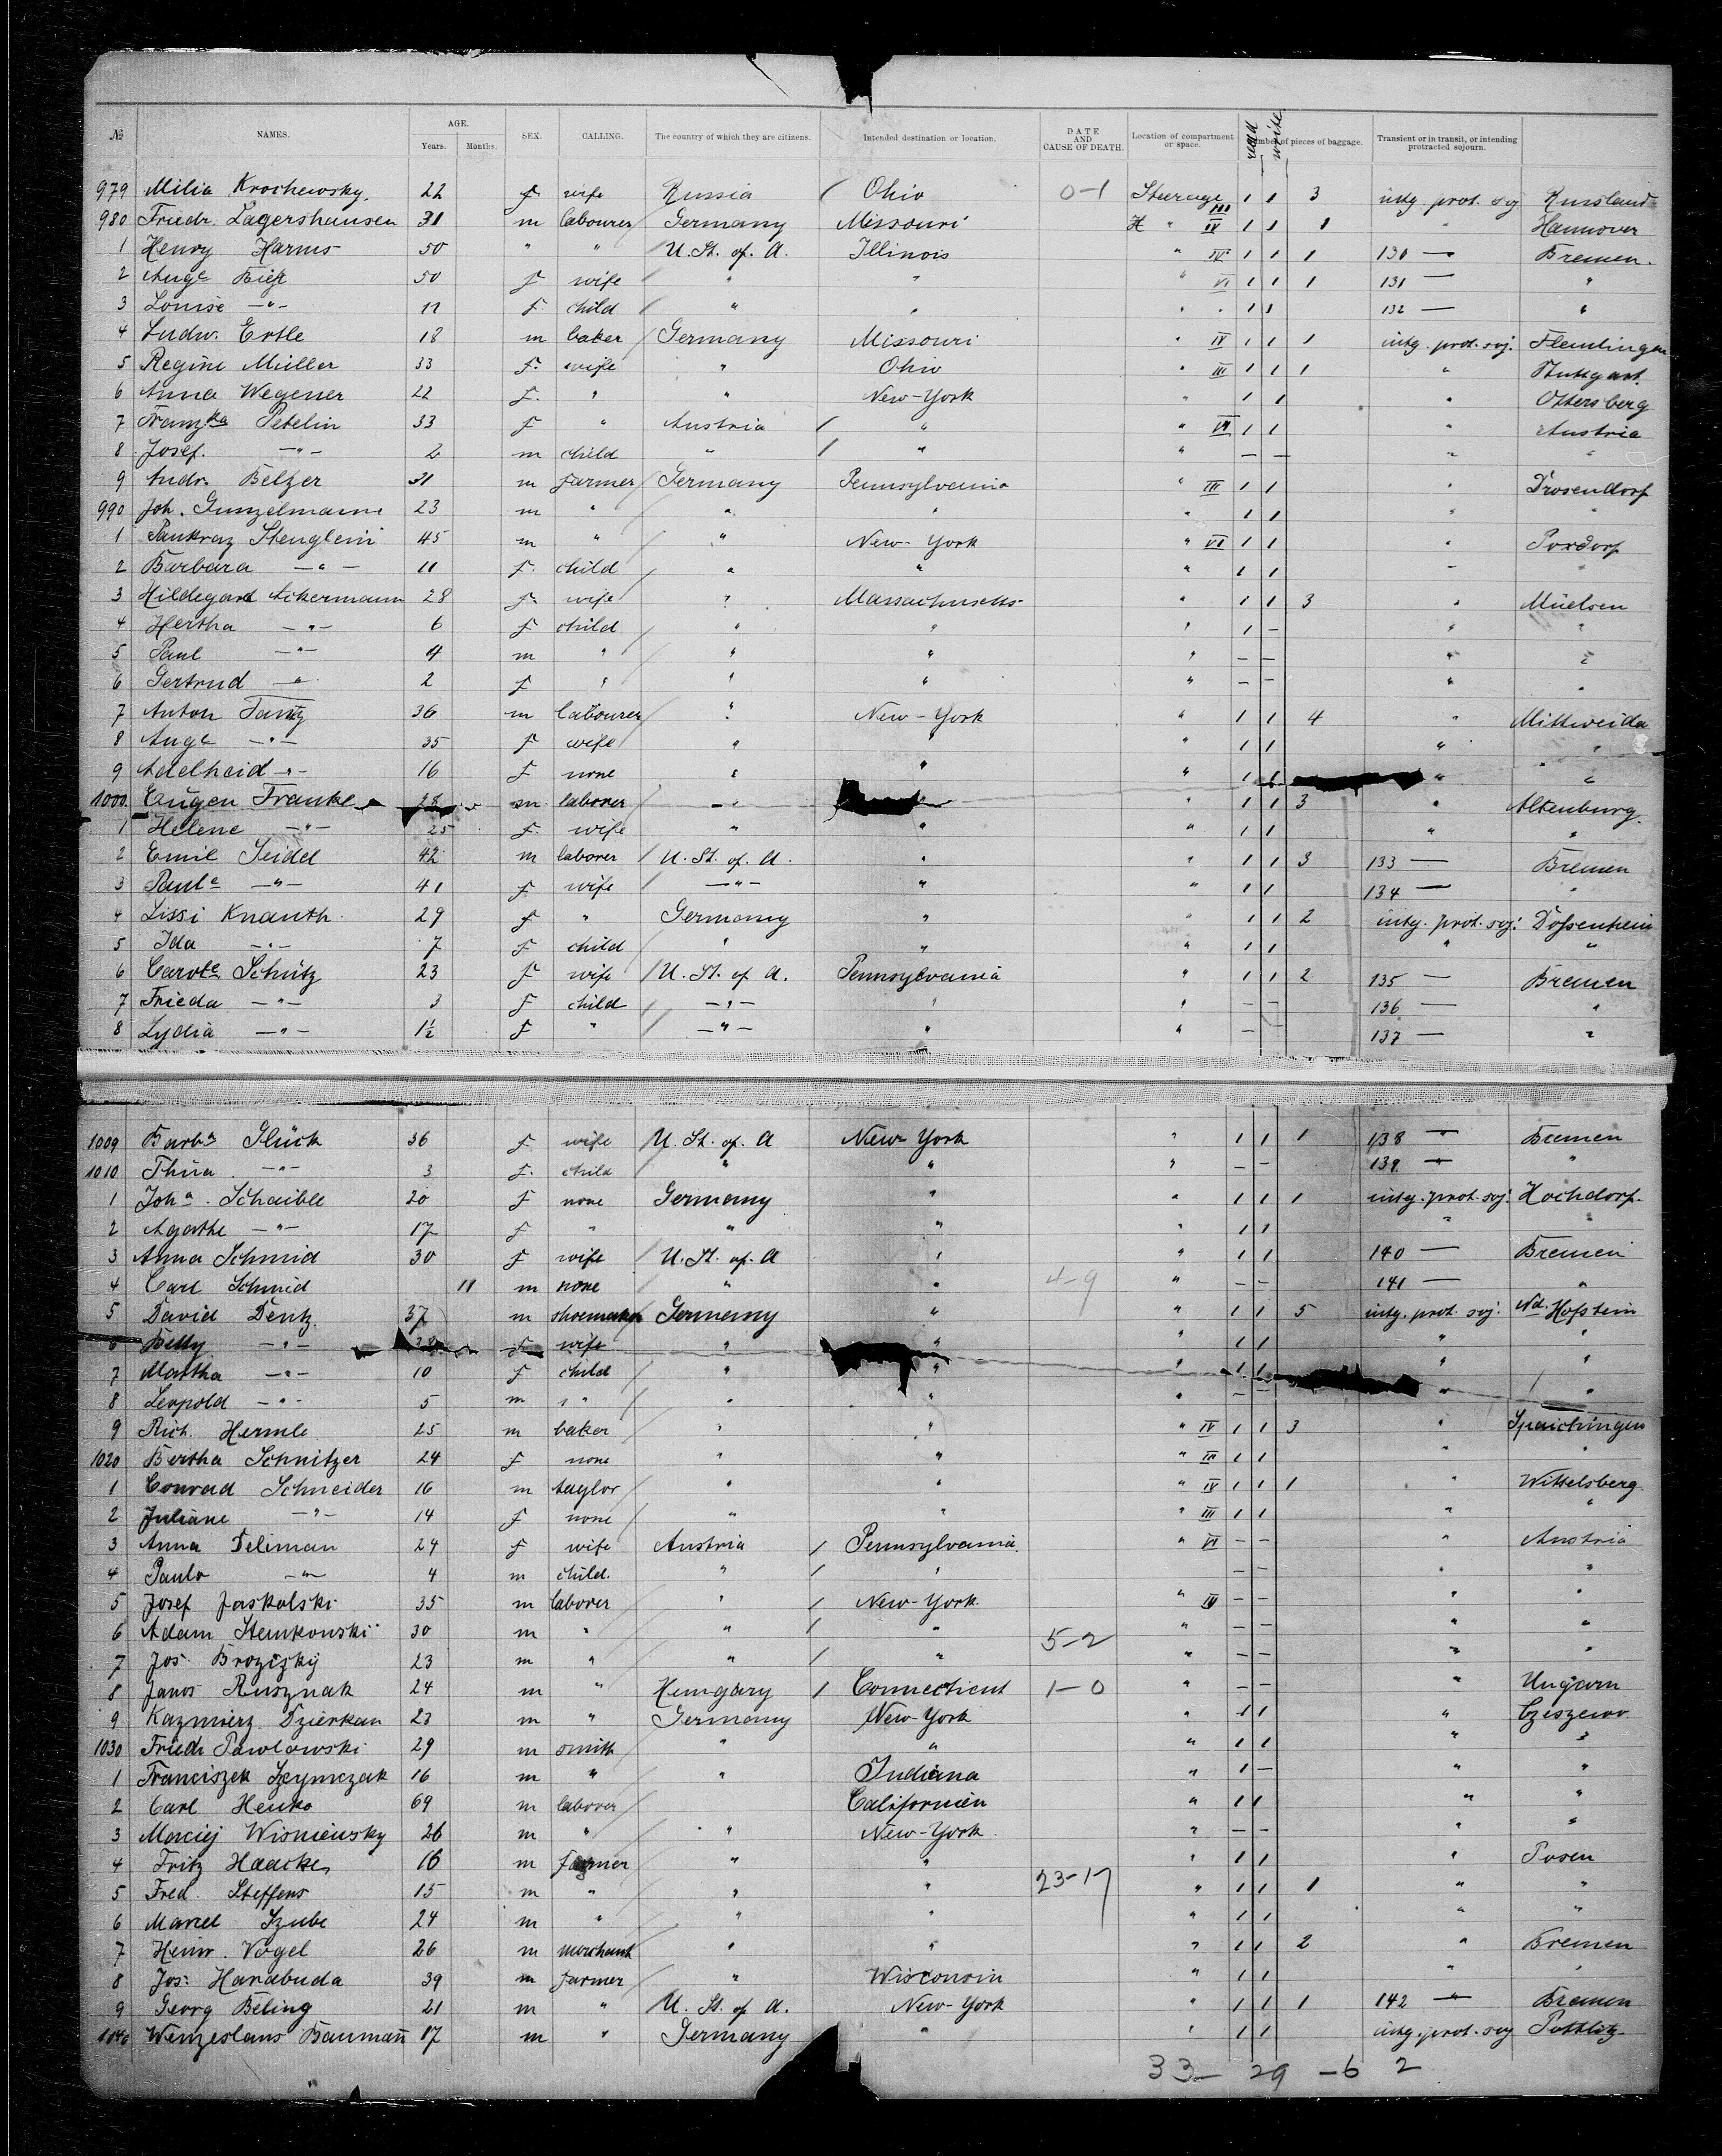 № NAMES. AGE. Years. Months. SEX. CALLING. The country of which they are citizens. Intended destination or location. DATE AND CAUSE OF DEATH. Location of compartment or space. read write Number of pieces of baggage. Transient or in transit, or intending protracted sojourn.
979 Milia Krochewsky. 22 f. wife Russia / Ohio 0-1 Steerage III 1 1 3 intg. prot. soj Russland
980 Friedr. Lagershausen 31 m labourer / Germany Missouri H " IV 1 1 1 " Hannover
1 Henry Harms 50 " " / U. St. of. A. Illinois " IV 1 1 1 130 — Bremen.
2 Auge 50 f wife / " " " VI 1 1 1 131 — "
3 Louise —"— 11 f. child / " " " " 1 1 132 — "
4 Ludw. Ertle 18 m baker / Germany Missouri " IV 1 1 1 intg. prot. soj. Flemlingen
5 Regine Müller 33 f. wife " Ohio " III 1 1 1 " Stuttgart.
6 Anna Wegener 22 f. " " New-York " 1 1 " Ottersberg
7 Franzka Petelin 33 f " Austria / " " VI 1 1 " Austria
8 Josef. —"— 2 m child " / " " — — " "
9 Andr. Belzer 31 m farmer / Germany Pennsylvania " III 1 1 " Drosendorf
990 Joh. Gunzelmann 23 m " / " " " 1 1 " "
1 Pankraz Stenglein 45 m " / " New-York " VI 1 1 " Poxdorf
2 Barbara —"— 11 f. child / " " " 1 1 " "
3 Hildegard Ackermann 28 f. wife / " Massachusetts " 1 1 3 " Müelsen
4 Hertha —"— 6 f child / " " " 1 — " "
5 Paul —"— 4 m " / " " " — — " "
6 Gertrud —"— 2 f " / " " " — — " "
7 Anton 36 m labourer / " New-York " 1 1 4 " Mittweida
8 Auge —"— 35 f wife / " " " 1 1 " "
9 Adelheid —"— 16 f none " " " 1 1 " "
1000. Eugen Franke 28 m laborer / —"— " 1 1 3 " Altenburg.
1 Helene —"— 25 f. wife " " " 1 1 " "
2 Emil Seidel 42 m laborer / U. St. of. A. " " 1 1 3 133 — Bremen
3 Paule —"— 41 f wife / —"— " " 1 1 134 — "
4 Lissi Knauth. 29 f " Germany " " 1 1 2 intg. prot. soj. Dossenheim
5 Ida —"— 7 f child " " " 1 1 " "
6 Carole Schütz 23 f wife / U. St. of A. Pennsylvania " 1 1 2 135 — Bremen
7 Frieda —"— 3 f child / —"— " " — — 136 — "
8 Lydia —"— 1½ f " / —"— " " — 137 — "
1009 Barba Glück 36 f wife U. St. of. A New-York " 1 1 1 138 — Bremen
1010 —"— 3 f. child / " " " — — 139 — "
1 Joha. Schaible 20 f none Germany " " 1 1 1 intg. prot. soj. Hochdorf.
2 Agathe —"— 17 f " " " " 1 1 " "
3 Anna Schmid 30 f wife / U. St. of. A " " 1 1 140 — Bremen
4 Carl Schmid 11 m none / " " 4-9 " — — 141 — "
5 David Dentz. 37 m shoemaker Germany " " 1 1 5 intg. prot. soj. Nd. Hofstein
6 Betty —"— f wife " " " 1 1 " "
7 Martha —"— 10 f child / " " " 1 1 " "
8 Leopold —"— 5 m " / " " " — — " "
9 Rich. Hermle 25 m baker / " " " IV 1 1 3 " Spaichingen
1020 Bertha Schnitzer 24 f none " " " III 1 1 " "
1 Conrad Schneider 16 m taylor / " " " IV 1 1 1 " Wittelsberg
2 Juliane —"— 14 f none / " " " III 1 1 " "
3 Anna Deliman 24 f wife Austria / Pennsylvania. " VI — — " Austria
4 Paulo —"— 4 m child. " / " — — " "
5 Josef Jaskolski 35 m laborer / " / New-York. " III — — " "
6 Adam Stemkonski 30 m " / " / " 5-2 " — — " "
7 Jos. Brozizkÿ 23 m " / " / " " — — " "
8 Janos Rusznak 24 m " Hungary / Connecticut 1-0 " — — " Ungarn
9 Kazmierz Dzierkan 23 m " / Germany New-York " 1 1 " Czeszewo
1030 Friedr Pawlowski 29 m smith / " " " 1 1 " "
1 Franciszek Szymczak 16 m " / " Indiana " 1 — " "
2 Carl Henko 69 m laborer / Californien " 1 1 " "
3 Maciej Wisniewsky 26 m " / " New-York. " — — " "
4 Fritz Haacke 16 m farmer / " " " 1 1 " Posen
5 Fred. Steffens 15 m " / " " 23-17 " 1 1 1 " "
6 Marcel Szube 24 m " / " " " 1 1 " "
7 Heinr. Vogel 26 m merchant " " " 1 1 2 " Bremen
8 Jos. Harabuda 39 m farmer / " Wisconsin " 1 1 " "
9 Georg Beling 21 m " / U. St. of A. New-York " 1 1 1 142 — Bremen
1040 Wenzeslaus Baumañ 17 m " / Germany " " 1 1 intg. prot. soj
33— 29 —6 2